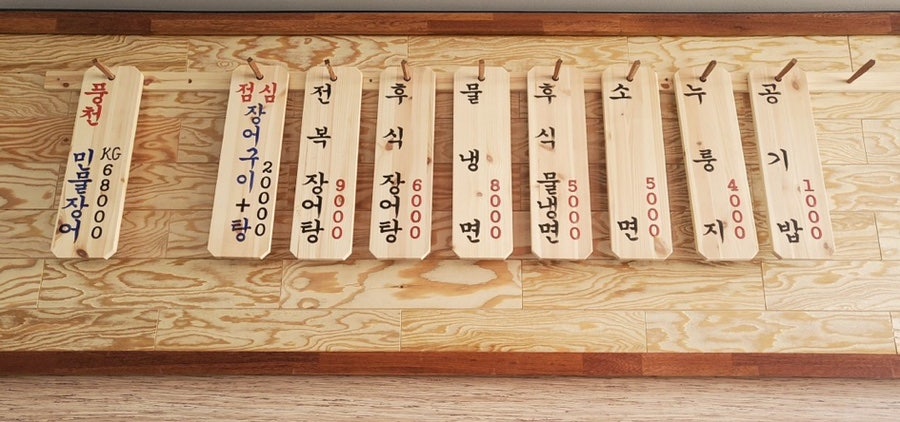 풍천 민물장어 KG 68000
점심 장어구이+탕 20000
전복 장어탕 9000
후식 장어탕 6000
물냉면 8000
후식 물냉면 5000
소면 5000
누룽지 4000
공기밥 1000